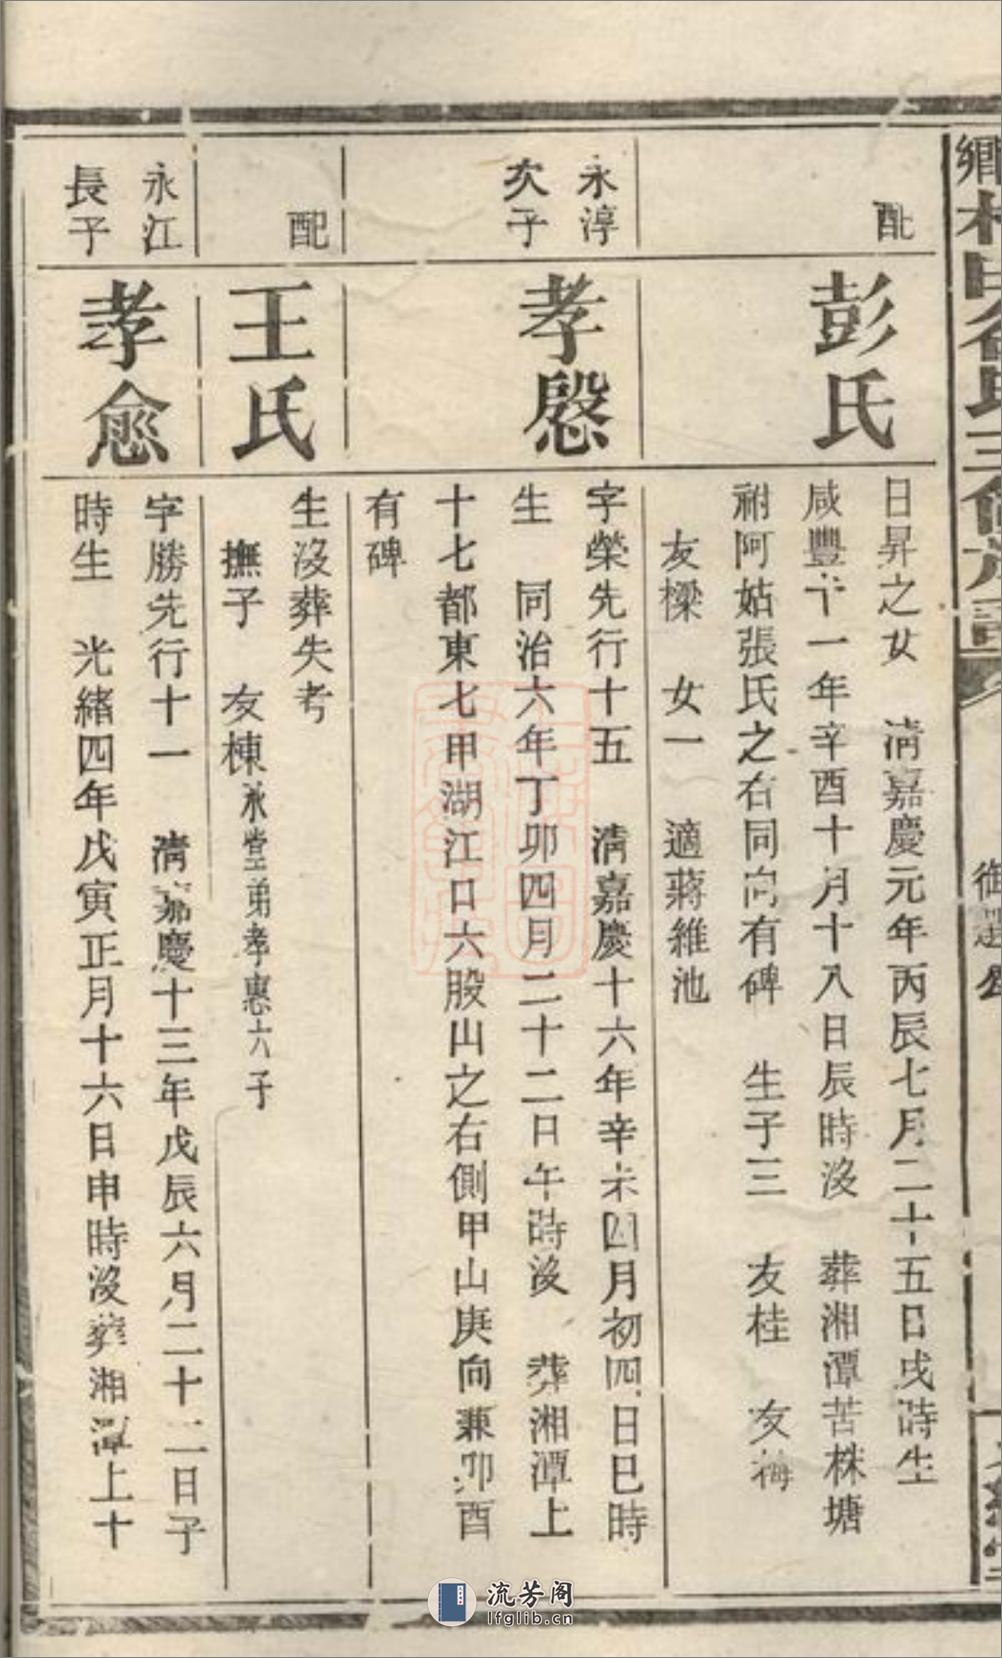 配
彭氏
日昇之女　清嘉慶元年丙辰七月二十五日戌時生
咸豐十一年辛酉十月十八日辰時沒　葬湘潭苦株塘
祔阿姑張氏之右同向有碑　生子三　友桂　友梅
友樑　女一　適蔣維池
永淳
次子
孝慇
字榮先行十五　清嘉慶十六年辛未四月初四日巳時
生　同治六年丁卯四月二十二日午時沒　葬湘潭上
十七都東七甲湖江口六股山之右側甲山庚向兼卯酉
有碑
配
王氏
生沒葬失考
撫子　友棟永瑩弟孝惠六子
永江
長子
孝愈
字勝先行十一　清嘉慶十三年戊辰六月二十二日子
時生　光緒四年戊寅正月十六日申時沒葬湘潭上十
流芳阁
lfglib.cn